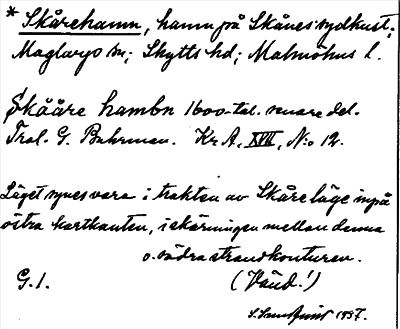 * Skårehamn, hamn på Skånes sydkust;
Maglarps sn; Skytts hd; Malmöhus l.
Skååre hambn 1600-tal. senare del.
Tral. G. Buhrman. Kr A, XVIII, N:o 12.
Läget synes vara i trakten av Skåre läge inpå
östra kartkanten, i skärningen mellan denna
o. södra strandkonturen.
G. 1. (Vänd!)
1937.